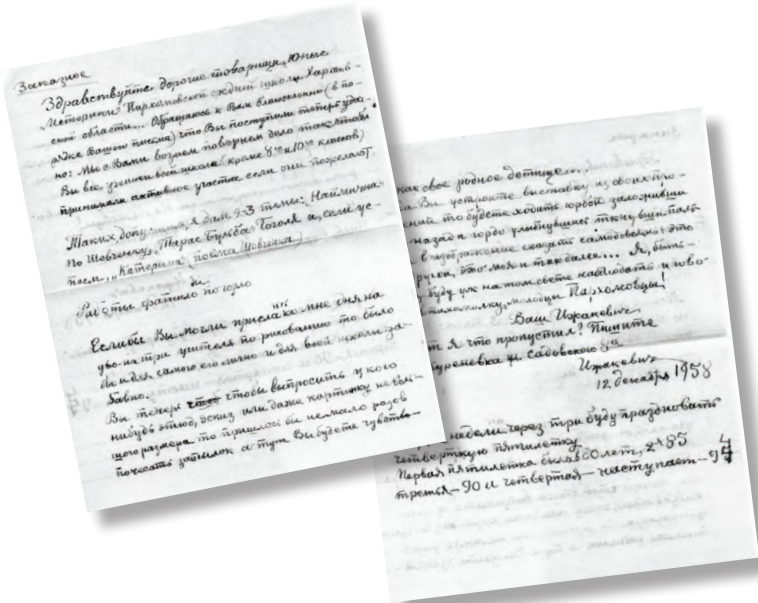 Заказное
Здравствуйте дорогие товарищи "Юные
Историки" Пархомовской средней школы Харьков-
ской области... Обращаюсь к Вам (в по-
рядке Вашего письма) что Вы поступили теперь удач-
но: Мы с Вами возмем поворнем дело так чтобы
Вы все ученики всей школы (кроме 8 и 10 классов)
принимали активное участие если они пожелают.
Таких, допустим, я дам 2-3 темы: Наймичка
по Шевченку, Тарас Бульба Гоголя и, если ус-
поем, "Катерина" (поэма Шевченка)
Работы бы хватило по горло
Если бы Вы могли прислать ко мне дня на
два-на три учителя по рисованию то было
бы и для самого его лично и для всей школы за-
бавно.
Вы теперь чтобы выпросить у кого
нибудь этюд, эскиз или даже картинку неболь-
шого размера то пришлось бы немало разов
почесать затылок а тут Вы будете чувство-
как свое родное детище...
да Вы устроите выставку из своих про-
ений то будете ходить гордо заложивши
назад и гордо улыбнувшись ткнувши паль-
изображение сказать самодовольно это
рук, это моя и так далее... Я, быть-
буду уж на том свете наблюдать и гово-
потихоньку, молодцы Пархомовцы!
Ваш Ижакевич
я что пропустил? Пишите
Куреневка ул. Садовского 8а
Ижакевич
12 декабря 1958
недели через три буду праздновать
четвертую пятилетку
Первая пятилетка была 80 лет, 2я 85
третья - 90 и четвертая - наступает - 94